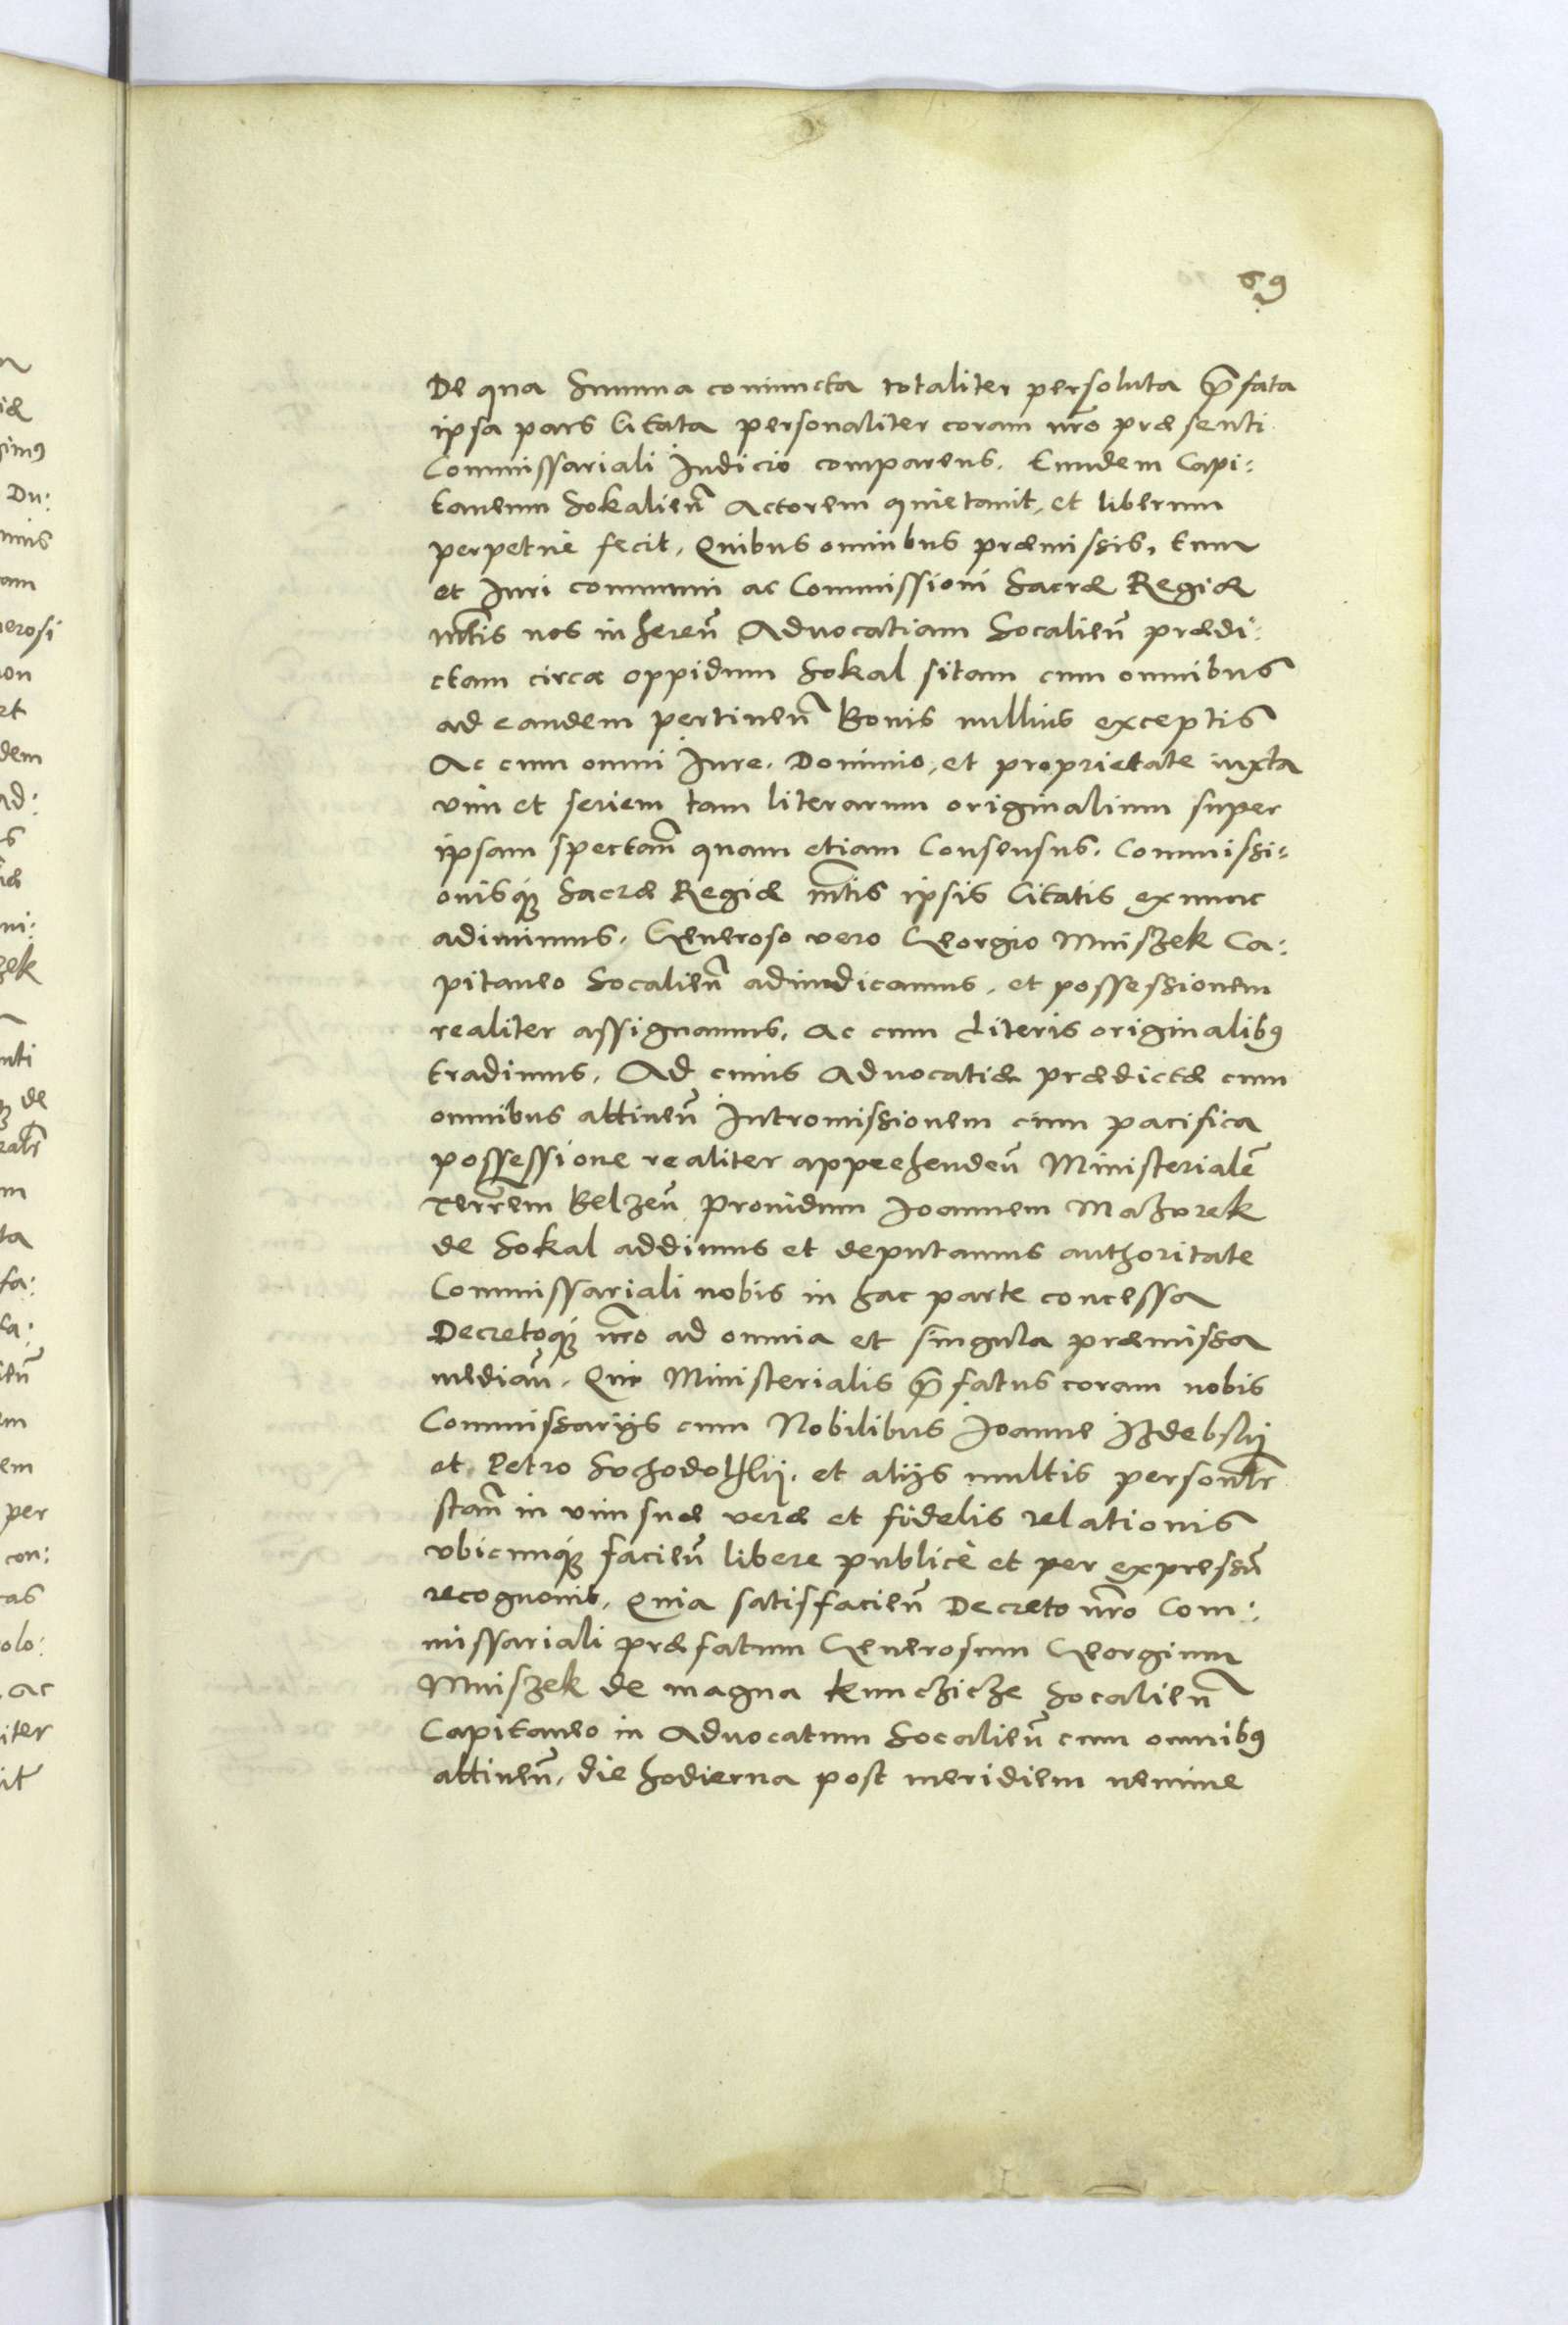 69
De qua Summa coniuncta totaliter persoluta p̃fata
ipsa pars Citata personaliter coram nr̃o præsenti
Commissariali Iudicio comparens. Eundem Capi:
taneum Sokalien̄ Actorem quietauit, et liberum
perpetuè fecit. Quibus omnibus præmissis, tum
et Iuri communi ac Commissioni Sacræ Regiæ
Mt̃is nos inheren̄ Aduocatiam Socalien̄ prædi:
ctam circa oppidum Sokal sitam cum omnibus
ad eandem pertinen̄ Bonis nullius exceptis
Ac cum omni Iure. Dominio, et proprietate iuxta
vim et seriem tam literarum originalium super
ipsam spectan̄ quam etiam Consensus. Commissi=
onisq́ꝫ Sacræ Regiæ mt̃is ipsis Citatis ex nunc
adimimus. Generoso vero Georgio Mniszek Ca:
pitaneo Socalien̄ adiudicamus, et possessionem
realiter assignamus. Ac cum Literis originalibꝰ
tradimus. Ad cuius Aduocatiæ prædictæ cum
omnibus attinen̄ Intromissionem cum pacifica
possessione realiter appræhenden̄ Ministerialē
terr̃em Belzen̄ prouidum Ioannem Mazurek
de Sokal addimus et deputamus authoritate
Commissariali nobis in hac parte concessa
Decretoq́ꝫ nr̃o ad omnia et singula præmissa
median̄. Qui Ministerialis p̃fatus coram nobis
Commissarijs cum Nobilibus Ioanne Izdebskij
et Petro Suchodolskij. et alijs multis personlr̃
stan̄ in vim suæ veræ et fidelis relationis
vbicunq́ꝫ facien̄ libere publicè et per expressū
recognouit. Quia satisfacien̄ Decreto nr̃o Com:
missariali præfatum Generosum Georgium
Mniszek de magna Kunczicze Socalien̄
Capitaneo in Aduocatum Socalien̄ cum omnibꝰ
attinen̄. die hodierna post meridiem nemine